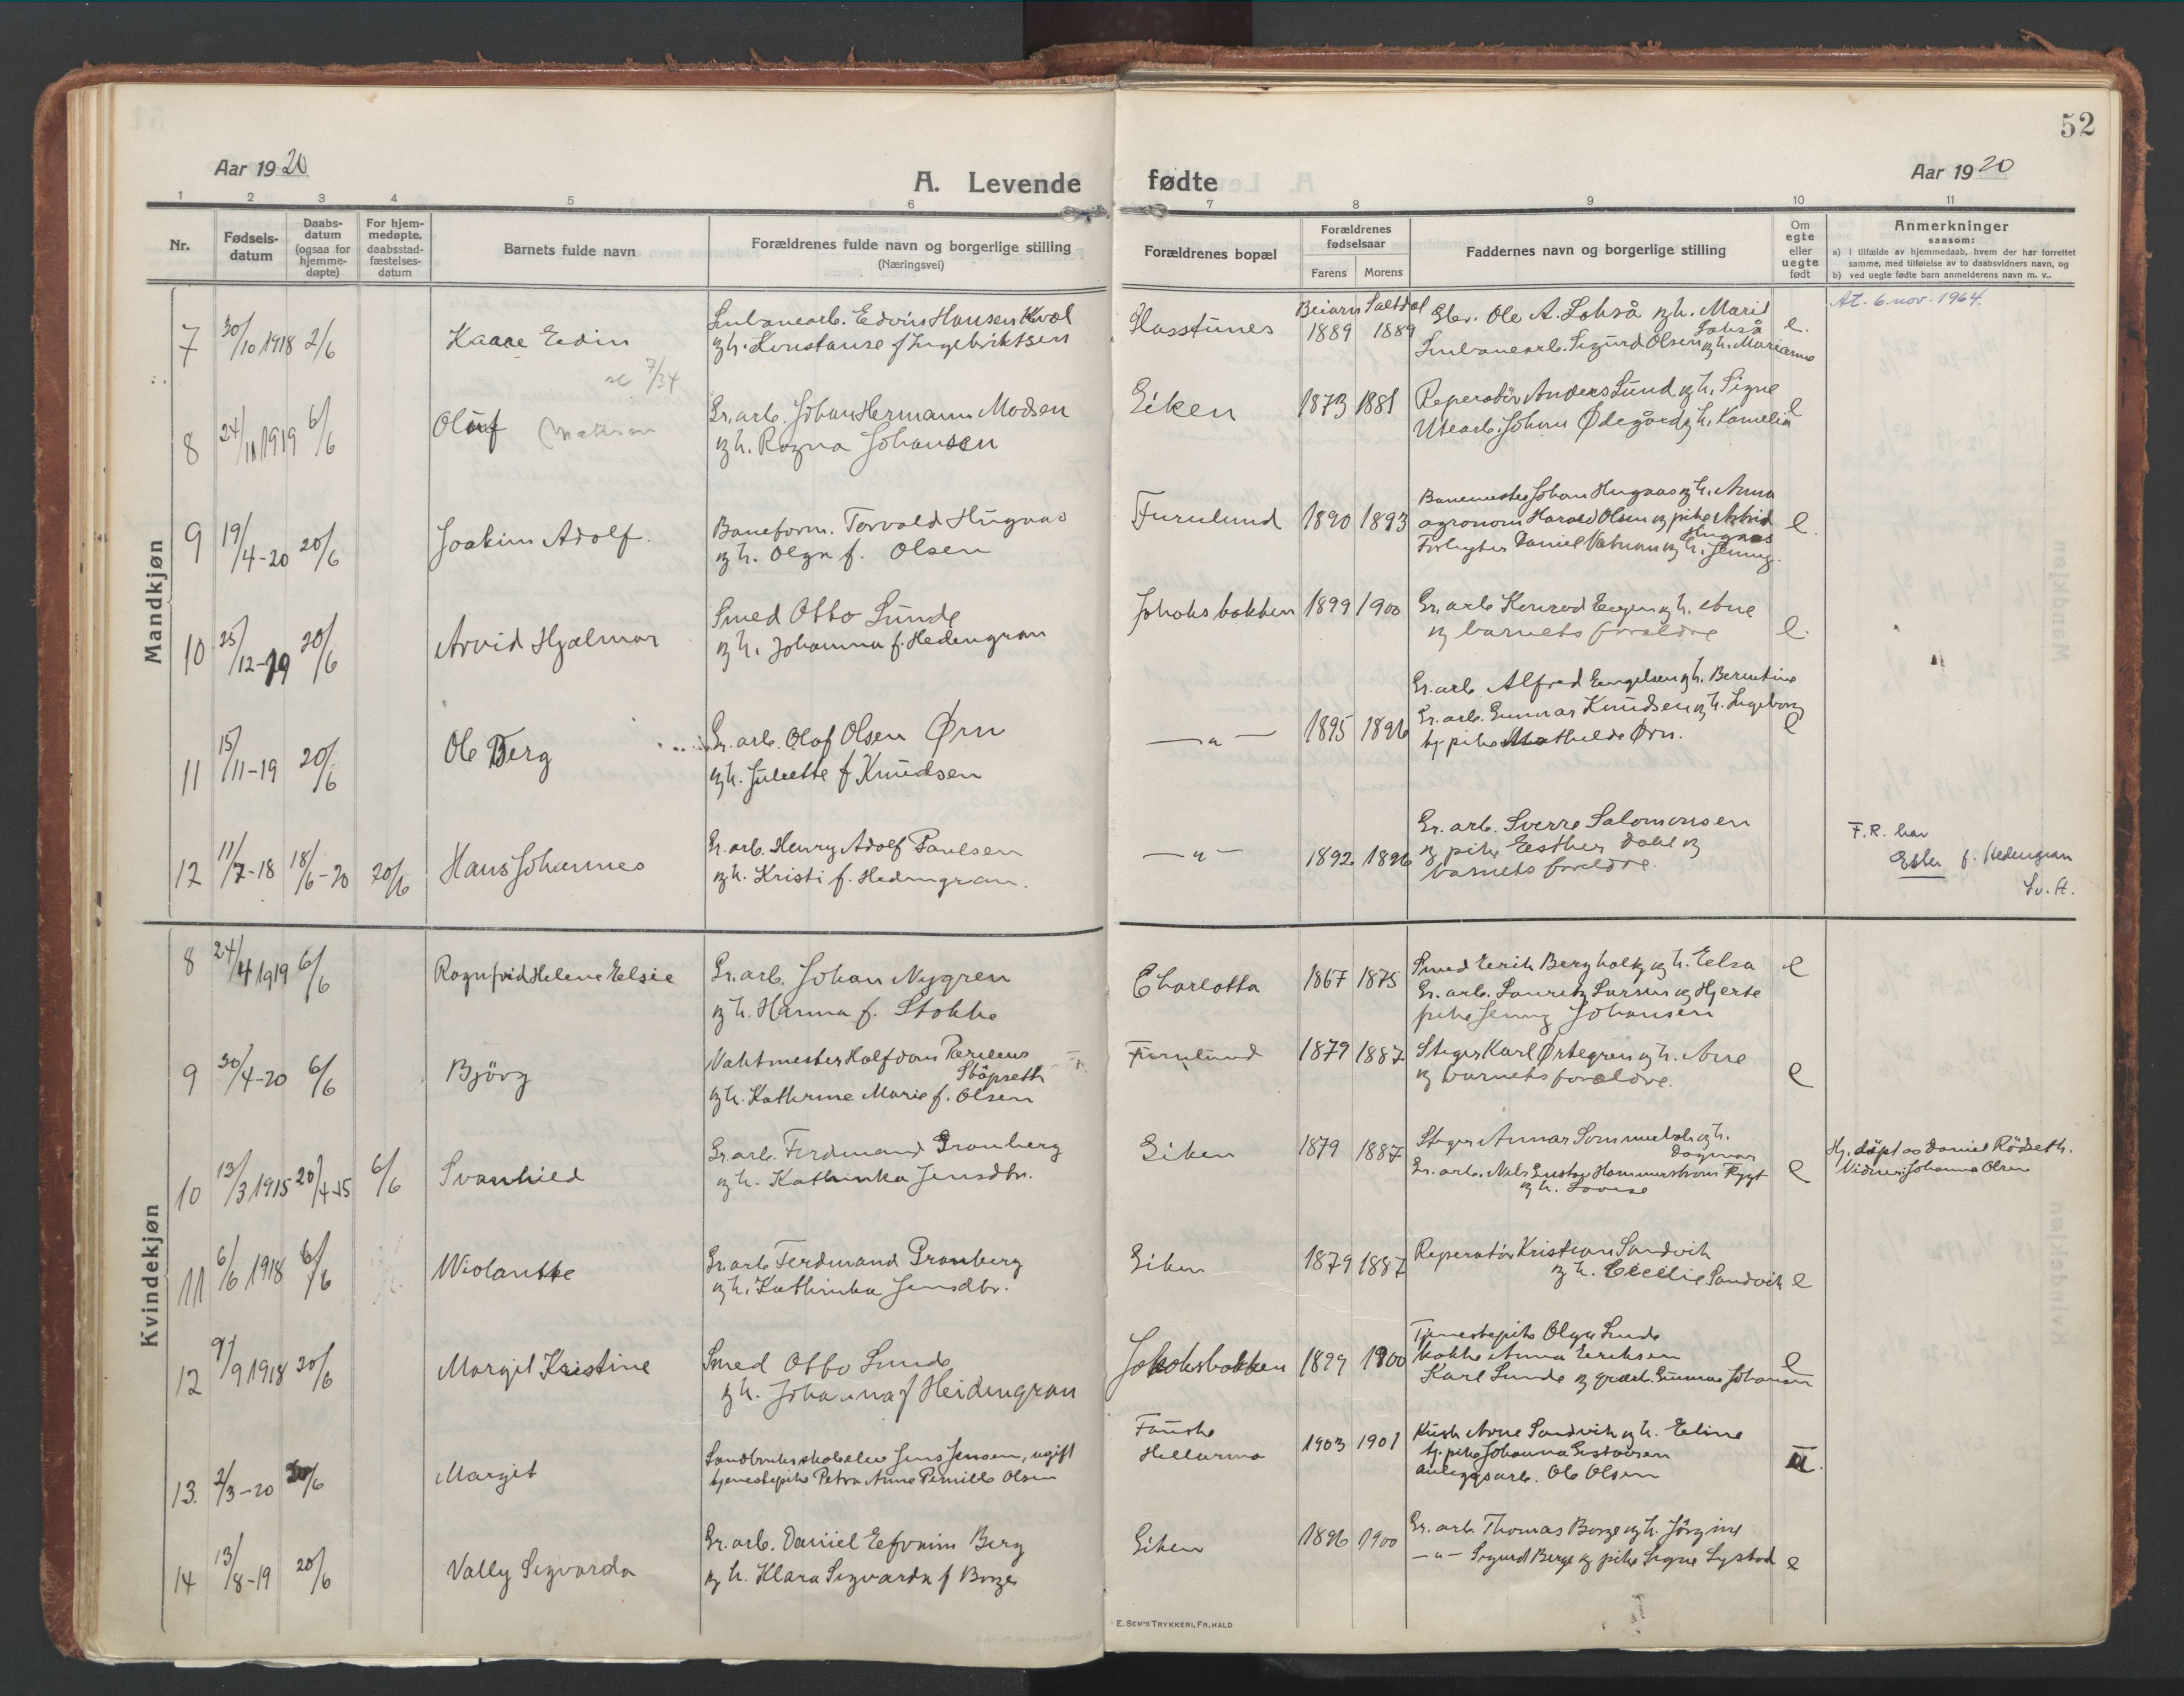 52
Aar 1920
A. Levende
fødte
Aar 1920
1 2 3 4 5 6 7 8 9 10 11
Nr.
Fødsels-
datum
Daabs-
datum
(ogsaa for
hjemme-
døpte)
For hjem-
medøpte,
daabsstad-
fæstelses-
datum
Barnets fulde navn
Forældrenes fulde navn og borgerlige stilling
(Næringsvei)
Forældrenes bopæl
Forældrenes
fødselsaar
Farens Morens
Faddernes navn og borgerlige stilling
Om
egte
eller
uegte
født
Anmerkninger
saasom:
a) i tilfælde av hjemmedaab, hvem der har forrettet
samme, med tilføielse av to daabsvidners navn, og
b) ved uegte fødte barn anmelderens navn m. v..
Mandkjøn
7 30/10 1918 2/6 Kaare Edin
Linbanearb. Edvin Hansen Kvæl
og h. Konstanse f Ingebriktsen
Beiarn Saltdal
1889 1889
Ole A. Lohså og h. Marit
Lohså
Linbanearb. Sigurd Olsen og h. Marianne
e.
At. 6. nov. 1964.
se 7/34
8 24/11 1919 6/6 Oluf
Gr. arb. Johan Hermann Madsen
og h. Ragna Johansen
Giken 1873 1881
Reperatör Anders Lund og h. Signe
Utearb. Johan Ødegård og h. Kornelia
e
9 19/4-20 20/6 Joakim Adolf.
Baneform. Torvald Hugaas
og h. Olga f. Olsen
Furulund 1890 1893
Banemester Johan Hugaas og h. Anna
agronom Harald Olsen og pike Astrid
Hugaas
Daniel Vatnan og h. Jenny.
e.
10 25/12-19 20/6 Arvid Hjalmar
Smed Otto Lunde
og h. Johanna f. Hedengran
Jakobsbakken 1899 1900
Gr. arb. Konrad Engen og h. Ane
og barnets forældre
e.
11 15/11-19 20/6 Ole Berg
Gr. arb. Olaf Olsen Ørn
og h. Juliette f Knudsen
— " — 1895 1896
Gr. arb. Alfred Engelsen og h. Berntine
Gr. arb. Gunnar Knudsen og h. Ingeborg
og pike Mathilde Ørn.
e
12 11/7-18 18/6-20 20/6 Hans Johannes
Gr. arb. Henry Adolf Paulsen
og h. Kristi f. Hedengran.
— " — 1892 1896
Gr. arb. Sverre Salomonsen
og pike Esther Dahl og
barnets foreldre.
F. R. har
Ester f. Hedengran
Kvindekjøn
8 24/4 1919 6/6 Ragnfrid Helene Elsie
Gr. arb. Johan Nygren
og h. Hanna f. Stokke
Charlotta 1867 1875
Smed Erik Bergholtz og h. Elsa
Gr. arb. Lauritz Larsen og Hjerte
pike Jenny Johansen
e
9 30/4-20 6/6 Björg
Vaktmester Halfdan Pareleus
Støpseth
og h. Kathrine Marie f. Olsen
Furulund 1879 1887
Stiger Karl Ørtegren og h. Ane
og barnets forældre.
e
10 13/3 1915 20/4-15 6/6 Svanhild
Gr. arb. Ferdinand Granberg
og h. Kathinka Jensdtr.
Giken 1879 1887
Stiger Annar Sommerbak og h.
Dagmar
Gr. arb. Nils Gustav Hammerstrøm
og h. Lovise
e
Hj. døpt av Daniel Rødseth.
Johanna Olsen
11 6/6 1918 6/6 Wiolantte
Gr. arb. Ferdinand Granberg
og h. Kathinka Jensdtr.
Giken 1879 1887
Reperatör Kristian Sandvik
og h. Cecilie Sandvik e
12 9/9 1918 20/6 Margit Kristine
Smed Otto Lunde
og h. Johanna f Heidengran
Jakobsbakken 1899 1900
Tjenestepike Olga Lunde
Kokke Anna Eriksen
Karl Lunde og gr. arb. Gunnar Johansen
e
13. 2/3-20 20/6 Margit
Landbruksskoleelev Jens Jensen, ugift
tjenestepike Petra Anne Pernille Olsen
Fauske
Hellarmo
1903 1901
Kusk Arne Sandvik og h. Eline
tj. pike Johanna Gustavsen
anlegsarb. Ole Olsen
U.
14 13/8-19 20/6 Vally Sigvarda
Gr. arb. Daniel Efraim Berg
og h. Klara Sigvarda f Borge
Giken 1896 1900
Gr. arb. Thomas Borge og h. Jörgine
— " — Sigurd Berge og pike Signe Lystad
e
E. SEM'S TRYKKERI, FR. HALD